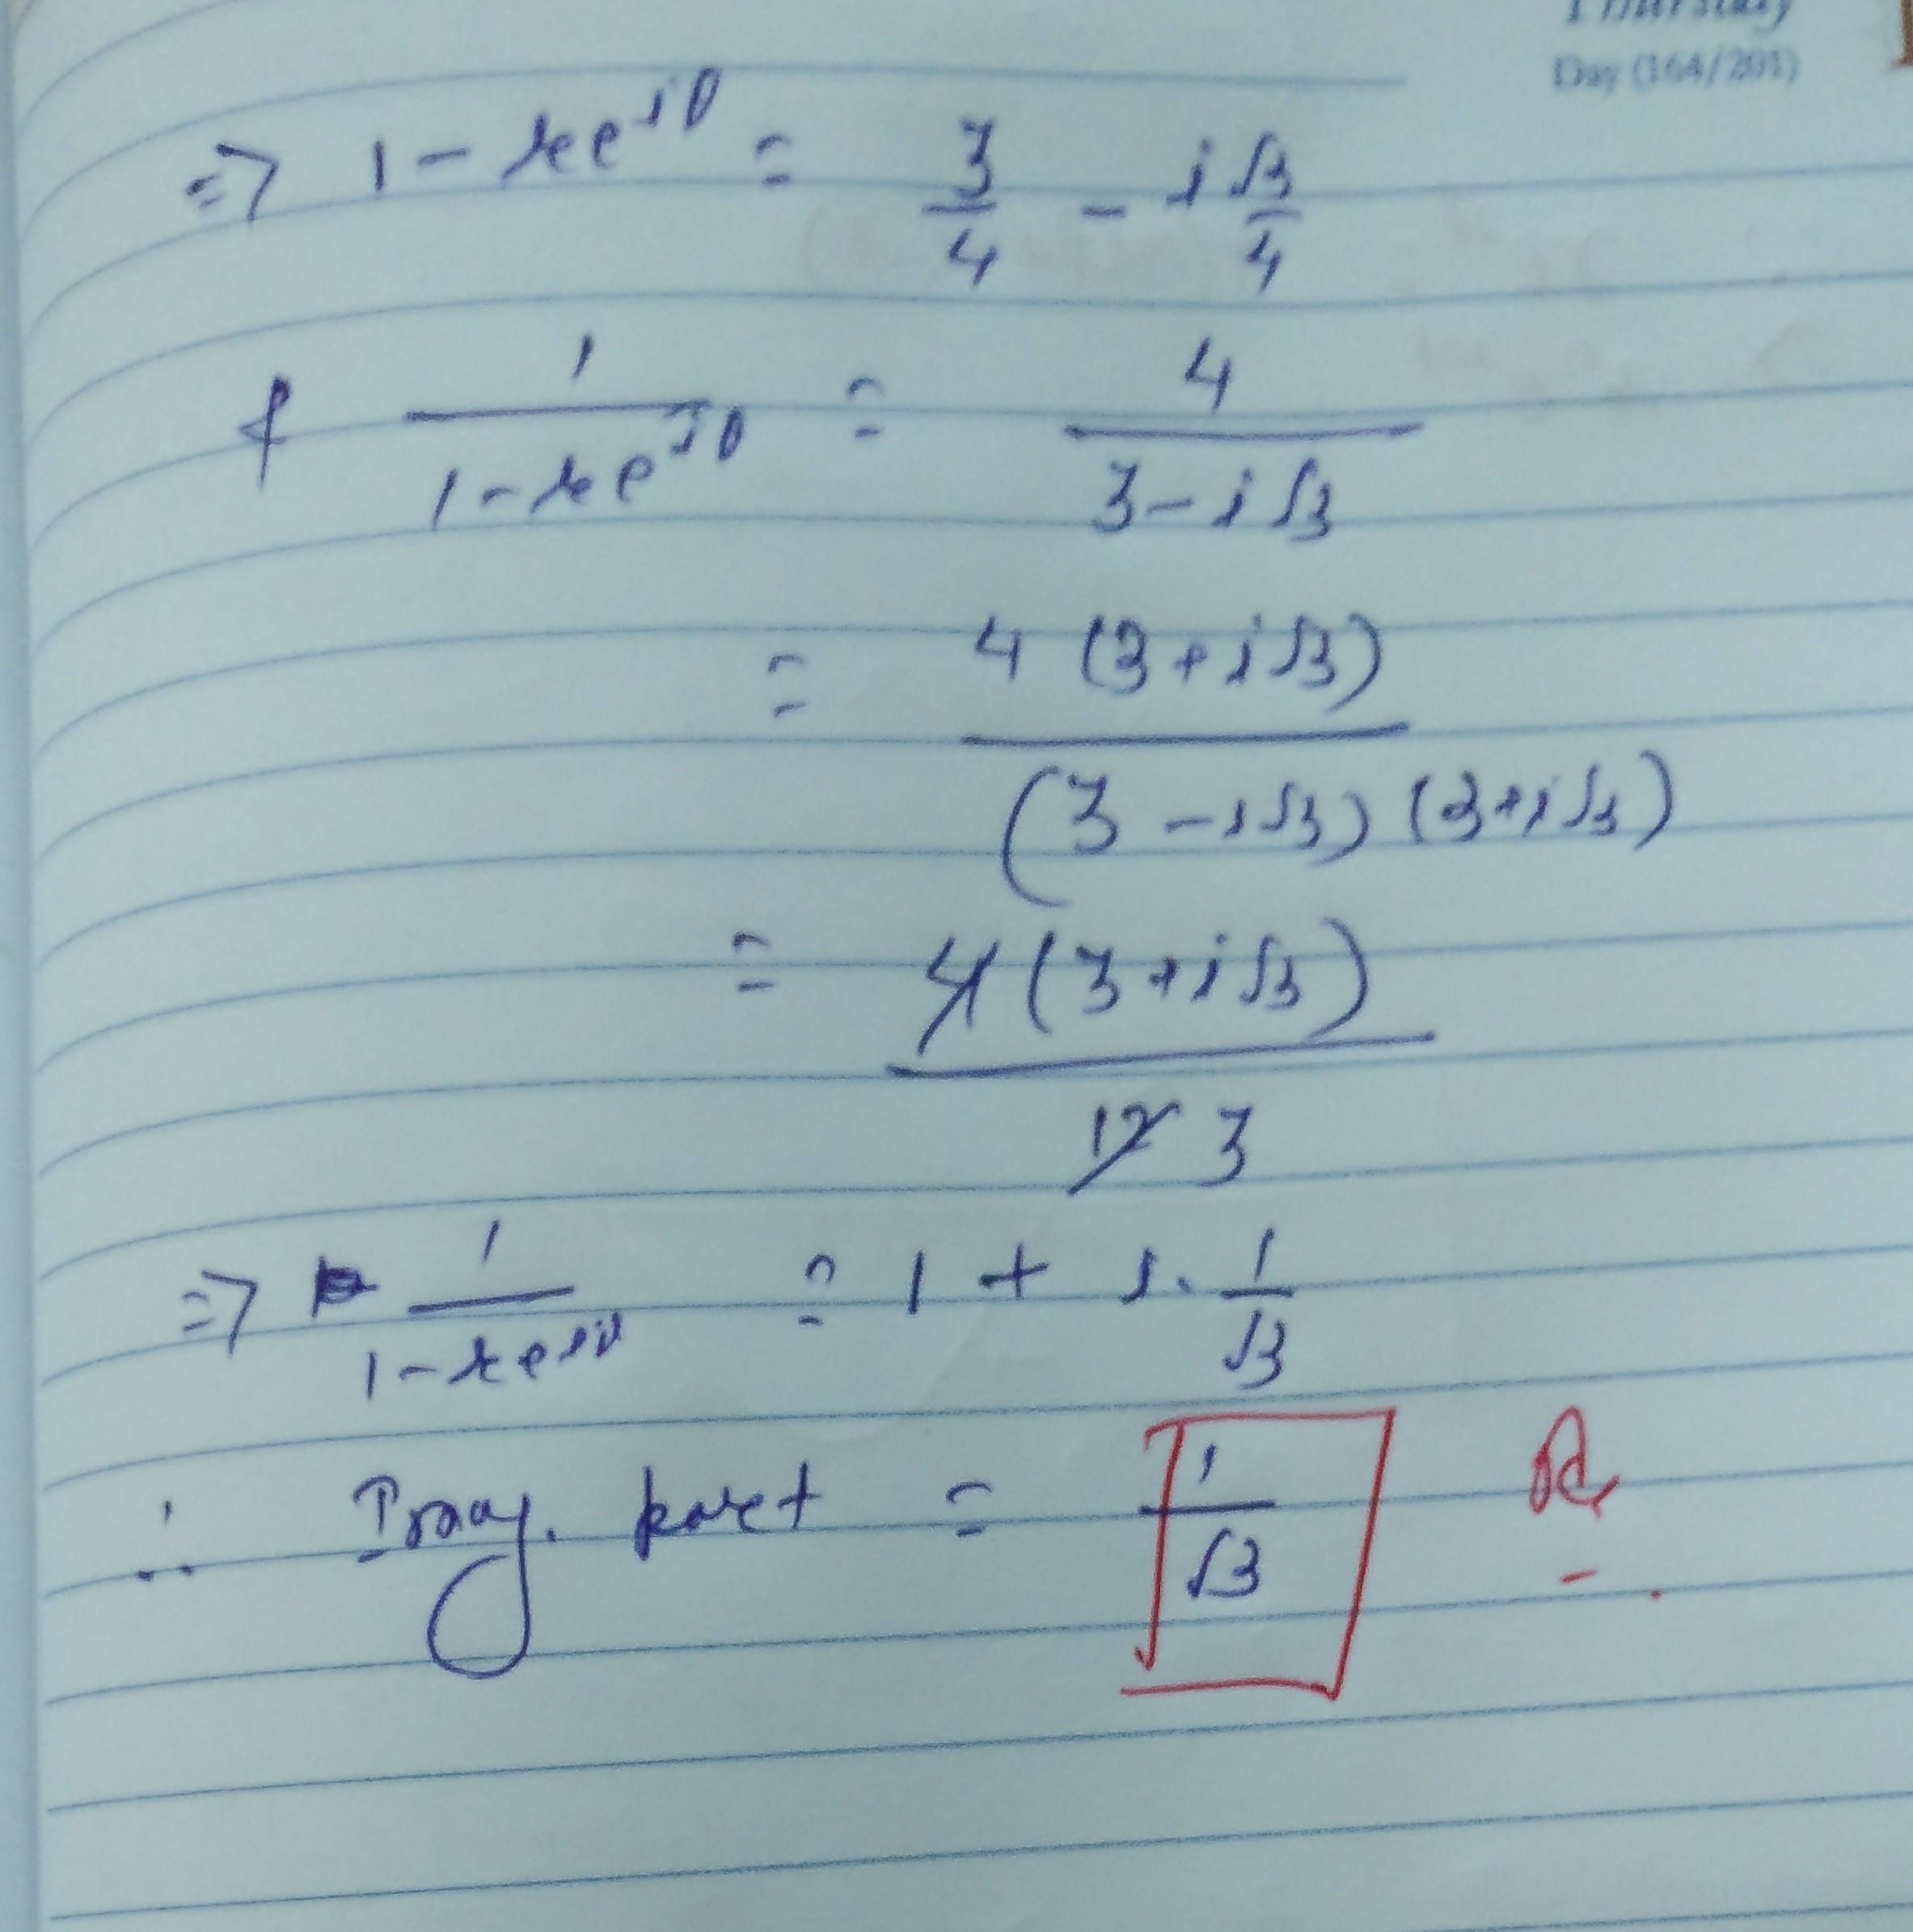 Thursday
Day (164/201)
=> 1 - re^{iθ} = 3/4 - i√3/4
& 1/(1 - re^{iθ}) = 4/(3 - i√3)
= 4(3 + i√3)/((3 - i√3)(3 + i√3))
= 4(3 + i√3)/12 3
=> 1/(1 - re^{iθ}) = 1 + i. 1/√3
∴ Imag. part = 1/√3